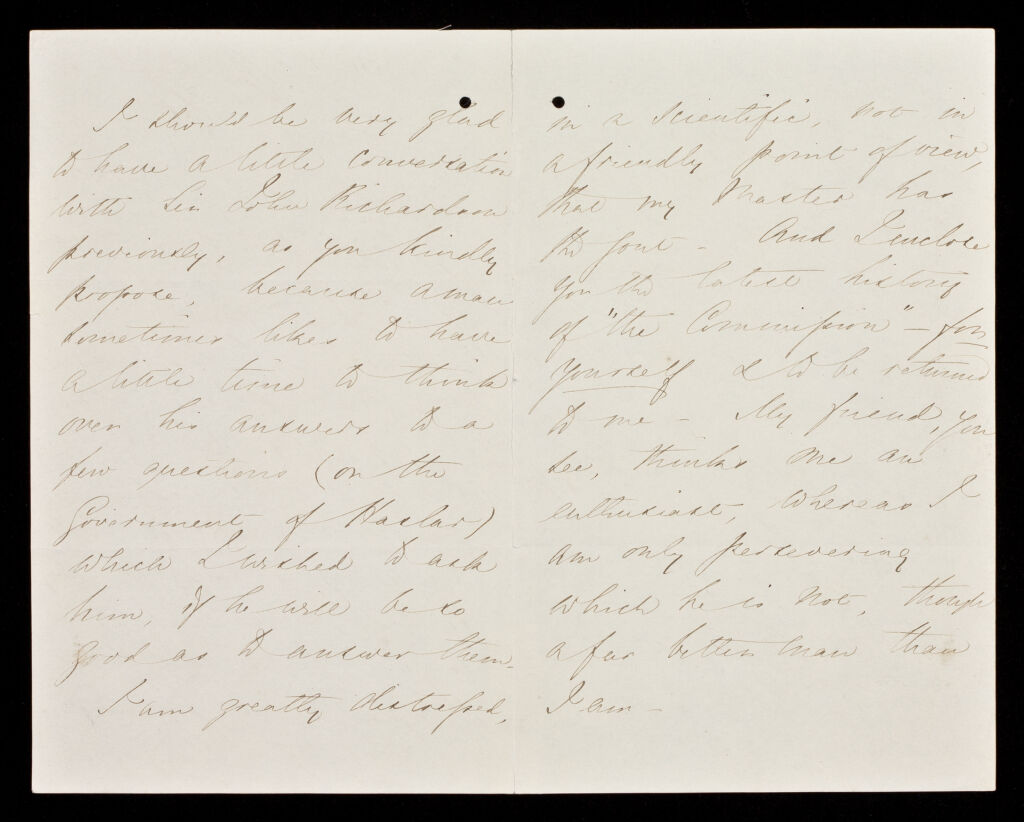 I should be very glad
to have a little conversation
with Sir John Richardson
previously, as you kindly
propose, because a man
sometimes likes to have
a little time to think
over his answers to a
few questions (on the
Government of Haslar)
which I wished to ask
him, if he will be so
good as to answer them.
I am greatly distressed,
in a scientific, not in
a friendly point of view,
that my Master has
the gout - And I enclose
you the latest history
of "the Commission" - for
yourself & to be returned
to me - My friend, you
see, thinks me an
enthusiast, whereas I
am only persevering
which he is not, though
a far better man than
I am -